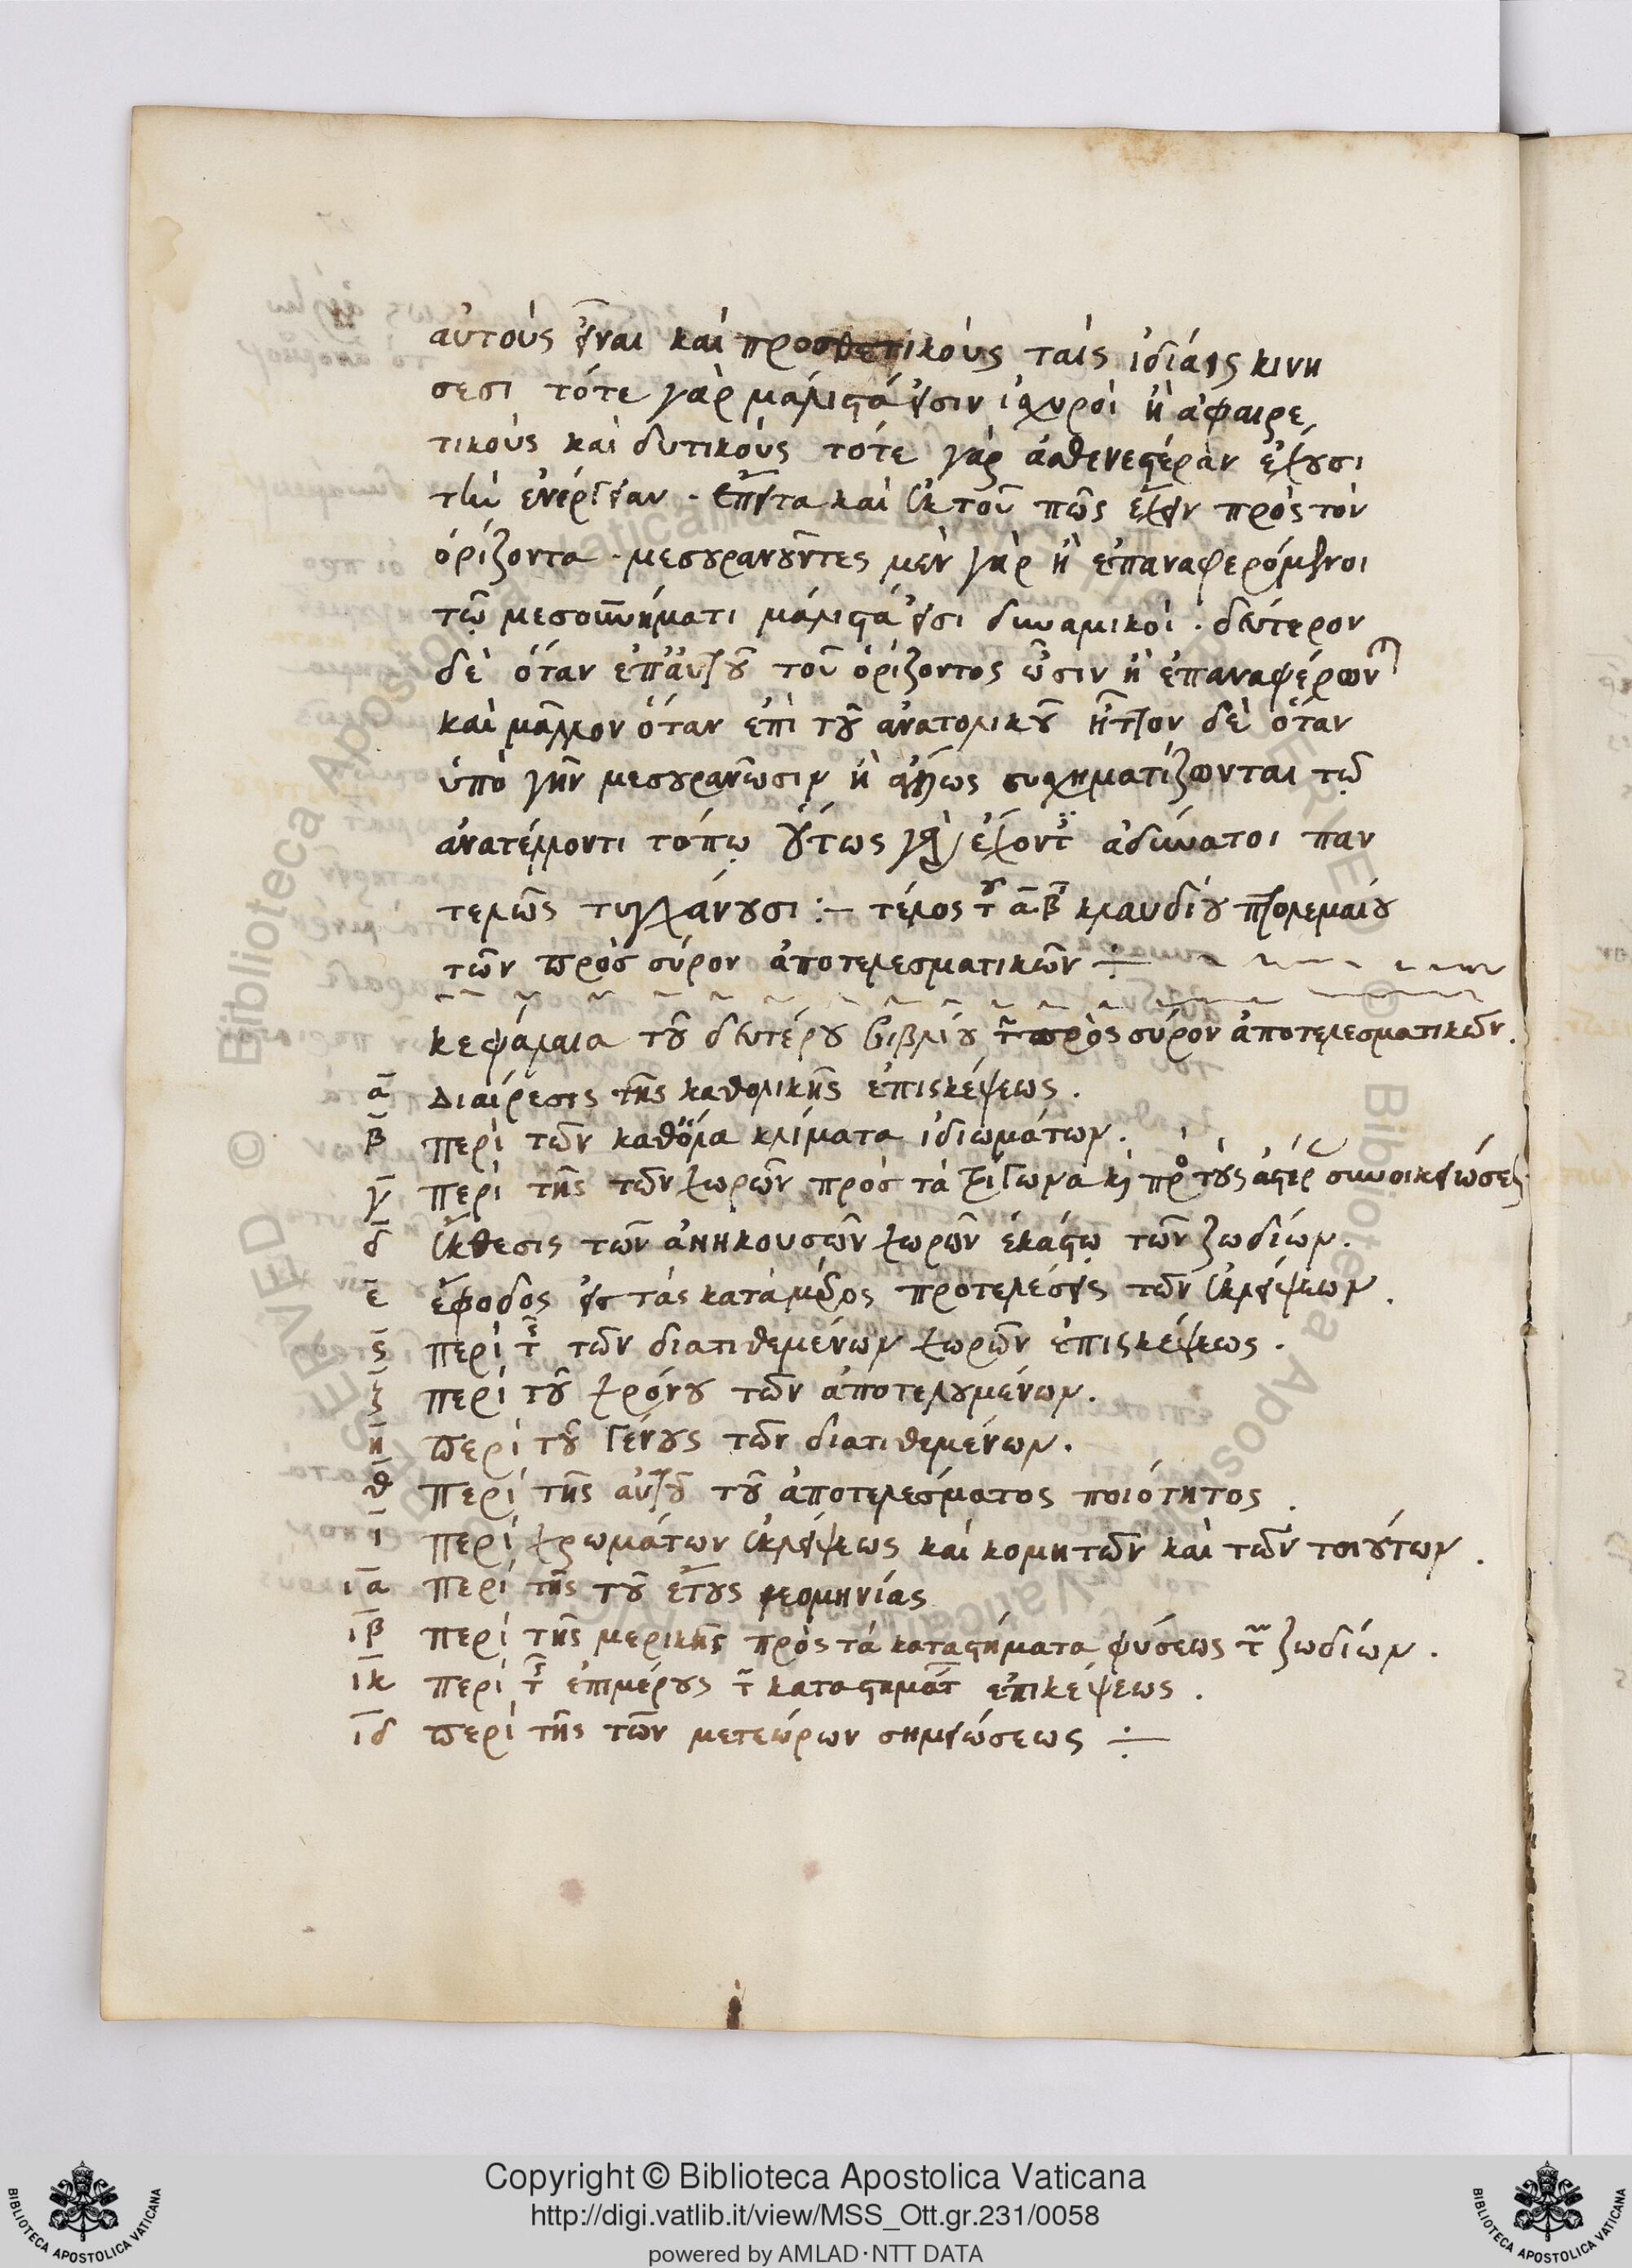 αὐτοὺς εἶναι καὶ προσθετικοὺς ταῖς ἰδίαις κινη
σεσι τότε γὰρ μάλιστά εἰσιν ἰσχυροὶ ἢ ἀφαιρε
τικοὺς καὶ δυτικοὺς τότε γὰρ ἀσθενεστέραν ἔχουσι
τὴν ἐνέργειαν · ἔπειτα καὶ ἐκ τοῦ πῶς ἔχειν πρὸς τὸν
ὁρίζοντα · μεσουρανοῦντες μὲν γὰρ ἢ ἐπαναφερόμενοι
τῷ μεσουρανήματι μάλιστά εἰσι δυναμικοί · δεύτερον
δὲ ὅταν ἐπ' αὐτοῦ τοῦ ὁρίζοντος ὦσιν ἢ ἐπαναφέρων
καὶ μᾶλλον ὅταν ἐπὶ τοῦ ἀνατολικοῦ ἧττον δὲ ὅταν
ὑπὸ γῆν μεσουρανῶσιν ἢ ἄλλως συσχηματίζωνται τῷ
ἀνατέλλοντι τόπῳ οὕτως γὰρ ἔχοντες ἀδύνατοι παν
τελῶς τυγχάνουσι :– τέλος τοῦ α β κλαυδίου πτολεμαίου
τῶν πρὸς σύρον ἀποτελεσματικῶν ÷
κεφάλαια τοῦ δευτέρου βιβλίου τῶν πρὸς σύρον ἀποτελεσματικῶν.
α διαίρεσις τῆς καθολικῆς ἐπισκέψεως.
β περὶ τῶν καθ' ὅλα κλίματα ἰδιωμάτων.
γ περὶ τῆς τῶν χωρῶν πρὸς τὰ τρίγωνα καὶ πρὸς τοὺς ἀστέρας συνοικειώσεως
δ ἔκθεσις τῶν ἀνηκουσῶν χωρῶν ἑκάστῳ τῶν ζωδίων.
ε ἔφοδος εἰς τὰς κατὰ μέρος προτελέσεις τῶν ἐκλείψεων.
ϛ περὶ τῆς τῶν διατιθεμένων χωρῶν ἐπισκέψεως.
ζ περὶ τοῦ χρόνου τῶν ἀποτελουμένων.
η περὶ τοῦ γένους τῶν διατιθεμένων.
θ περὶ τῆς αὐτοῦ τοῦ ἀποτελέσματος ποιότητος.
ι περὶ χρωμάτων ἐκλείψεως καὶ κομητῶν καὶ τῶν τοιούτων.
ια περὶ τῆς τοῦ ἔτους νεομηνίας
ιβ περὶ τῆς μερικῆς πρὸς τὰ καταστήματα φύσεως τῶν ζωδίων.
ικ περὶ τῆς ἐπιμέρους τῶν καταστημάτων ἐπικέψεως.
ιδ περὶ τῆς τῶν μετεώρων σημειώσεως ÷
Copyright © Biblioteca Apostolica Vaticana
http://digi.vatlib.it/view/MSS_Ott.gr.231/0058
powered by AMLAD·NTT DATA
BIBLIOTECA APOSTOLICA VATICANA
BIBLIOTECA APOSTOLICA VATICANA